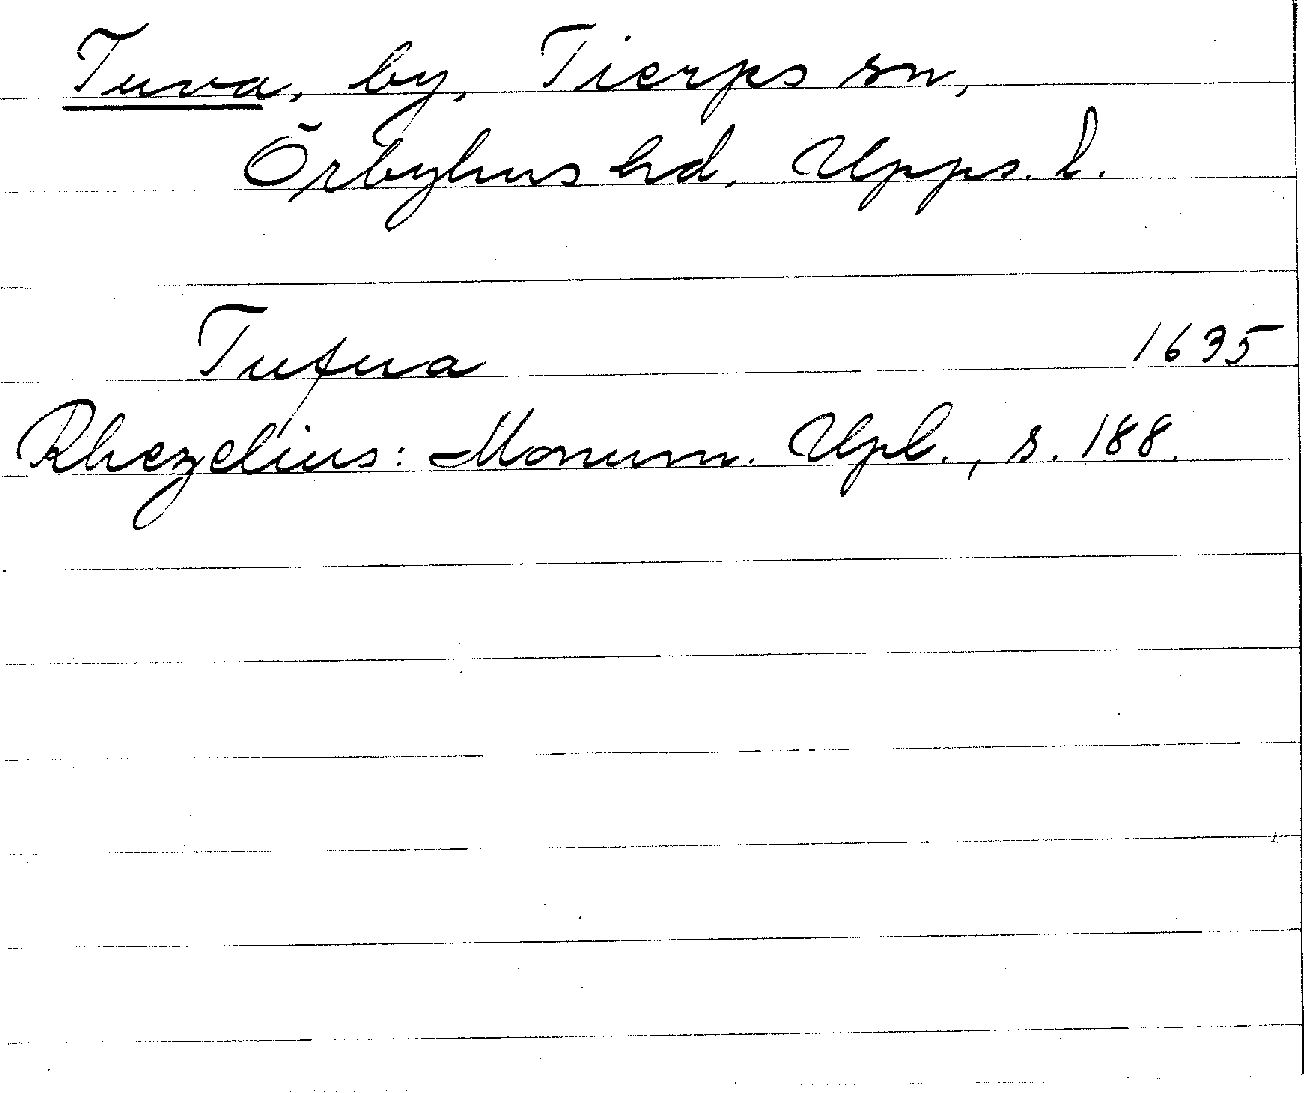 Tuva, by, Tierps sn,
Örbyhus hd, Upps. l.
Tufua 1635
Rhezelius: Monum. Upl., s. 188.